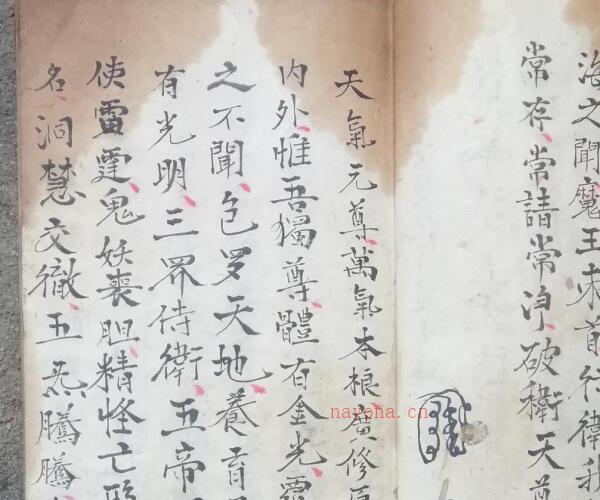 海之聞魔王束首行衛我
常存、常請常淨、破衛天尊
天氣元尊、萬氣本根廣修
内外、惟吾獨尊、體有金光、
之不聞、包罗天地、養育
有光明、三界侍衛、五帝
使雷霆、鬼妖喪胆、精怪亡形
名、洞慧交徹、五炁騰騰
nayona.cn